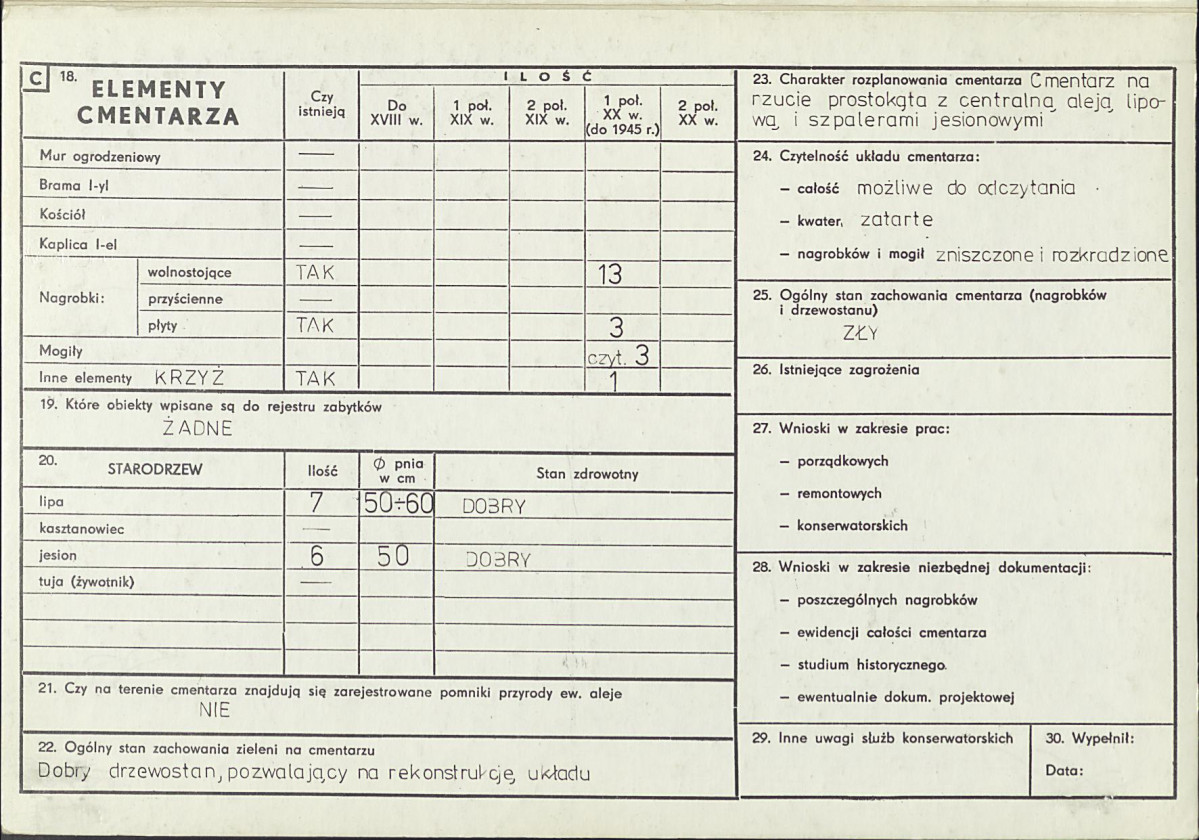 C 18. ELEMENTY CMENTARZA
Czy istnieją
I L O Ś Ć
Do XVIII w.
1 poł. XIX w.
2 poł. XIX w.
1 poł. XX w. (do 1945 r.)
2 poł. XX w.
Mur ogrodzeniowy —
Brama l-yl —
Kościół —
Kaplica l-el —
Nagrobki:
wolnostojące TAK 13
przyścienne —
płyty TAK 3
Mogiły czyt. 3
Inne elementy KRZYŻ TAK 1
19. Które obiekty wpisane są do rejestru zabytków
ŻADNE
20. STARODRZEW Ilość Ø pnia w cm Stan zdrowotny
lipa 7 50÷60 DOBRY
kasztanowiec —
jesion 6 50 DOBRY
tuja (żywotnik) —
21. Czy na terenie cmentarza znajdują się zarejestrowane pomniki przyrody ew. aleje
NIE
22. Ogólny stan zachowania zieleni na cmentarzu
Dobry drzewostan, pozwalający na rekonstrukcję układu
23. Charakter rozplanowania cmentarza Cmentarz na
rzucie prostokąta z centralną aleją lipo-
wą i szpalerami jesionowymi
24. Czytelność układu cmentarza:
– całość możliwe do odczytania
– kwater, zatarte
– nagrobków i mogił zniszczone i rozkradzione
25. Ogólny stan zachowania cmentarza (nagrobków
i drzewostanu)
ZŁY
26. Istniejące zagrożenia
27. Wnioski w zakresie prac:
– porządkowych
– remontowych
– konserwatorskich
28. Wnioski w zakresie niezbędnej dokumentacji:
– poszczególnych nagrobków
– ewidencji całości cmentarza
– studium historycznego.
– ewentualnie dokum. projektowej
29. Inne uwagi służb konserwatorskich
30. Wypełnił:
Data: